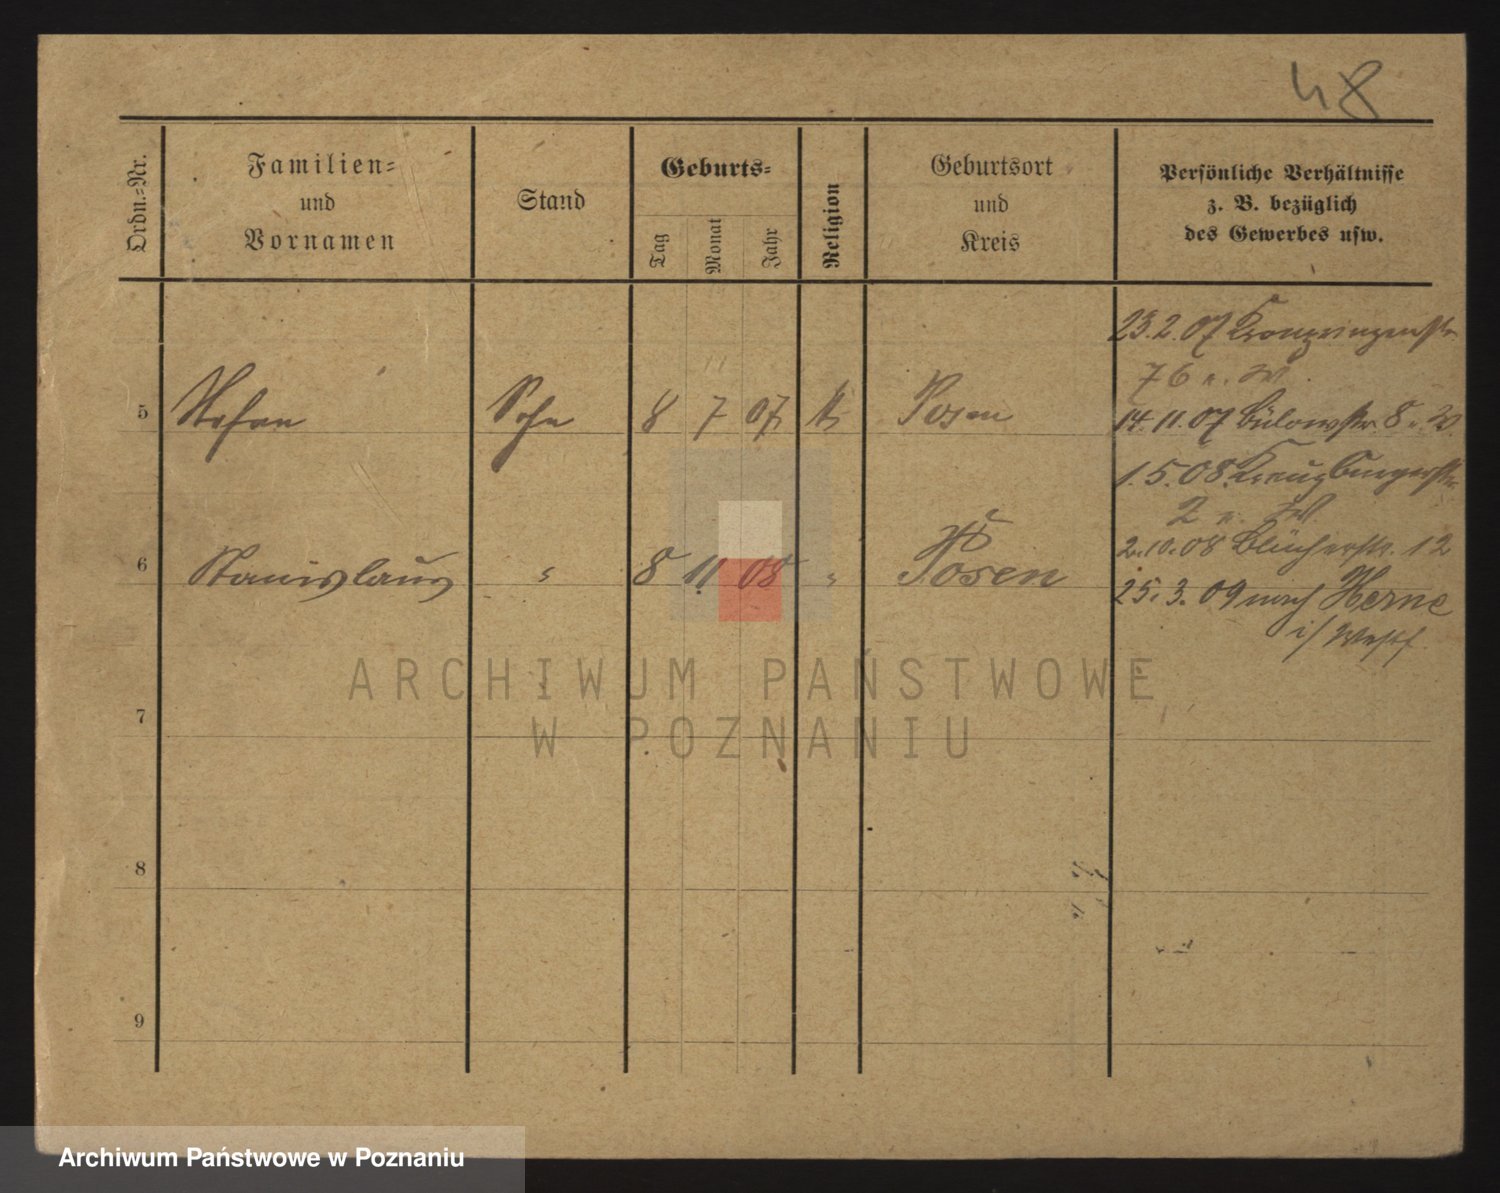 48
Ordn.-Nr.
Familien-
und
Vornamen
Stand
Geburts-
Tag
Monat
Jahr
Religion
Geburtsort
und
Kreis
Persönliche Verhältnisse
z. B. bezüglich
des Gewerbes usw.
23.2.07 Kronprinzenstr
76 u. W.
5 Stefan Sohn 8 7 07 k Posen
14.11.07 Bülowstr. 8 u. W.
1.5.08. Kreuzburgerstr.
2 u. W.
6 Stanislaus " 8 11 08 " Posen
2.10.08 Blücherstr. 12
25.3.09 nach Herne
i/ Westf.
ARCHIWUM PAŃSTWOWE
W POZNANIU
7
8
9
Archiwum Państwowe w Poznaniu